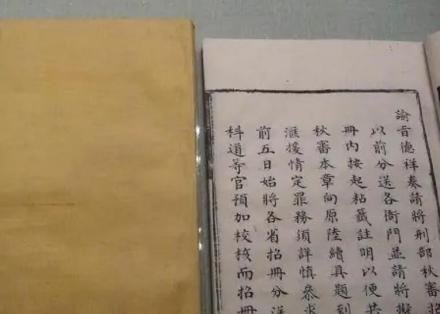 諭旨德祥奏請將刑部秋審招
以前分送各衙門並請將擬
冊內按起粘籤註明以便共
秋審本章向原陸續具題到
滙核情定罪務須詳慎參求
前五日始將各省招冊分送
科道等官預加校核而招冊